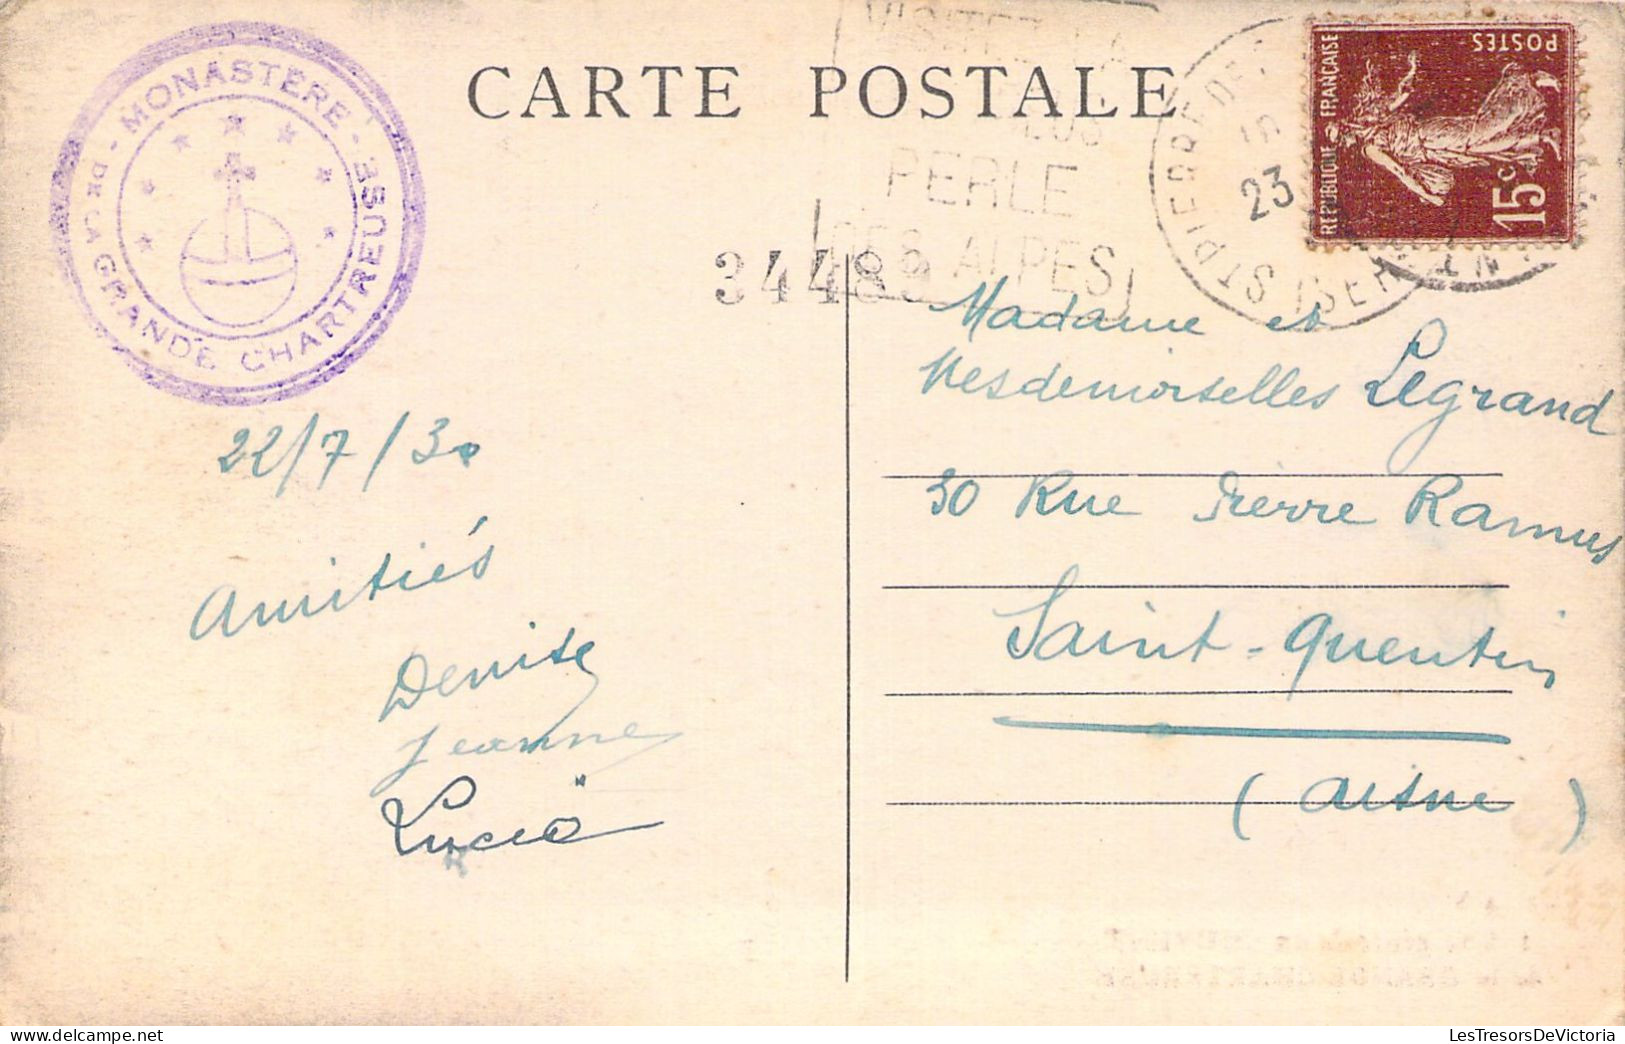 CARTE POSTALE
- MONASTÈRE -
DE LA GRANDE CHARTREUSE
VISITEZ LA
PERLE
DES ALPES
ST PIERRE DE
ISERE
23
REPUBLIQUE FRANCAISE
POSTES
15c
34489
22/7/30
Amitiés
Denise
Jeanne
Lucie
Madame et
Mesdemoiselles Legrand
30 Rue Pierre Ramus
Saint-Quentin
(Aisne)
LesTresorsDeVictoria